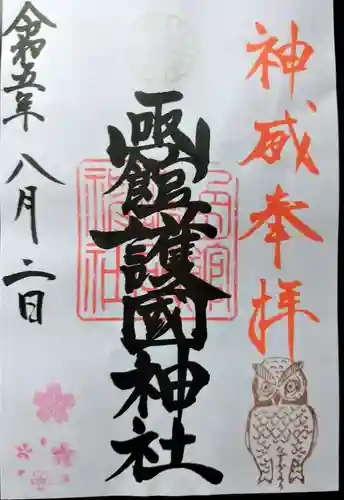 神威奉拝
函館護國神社
令和五年八月二日